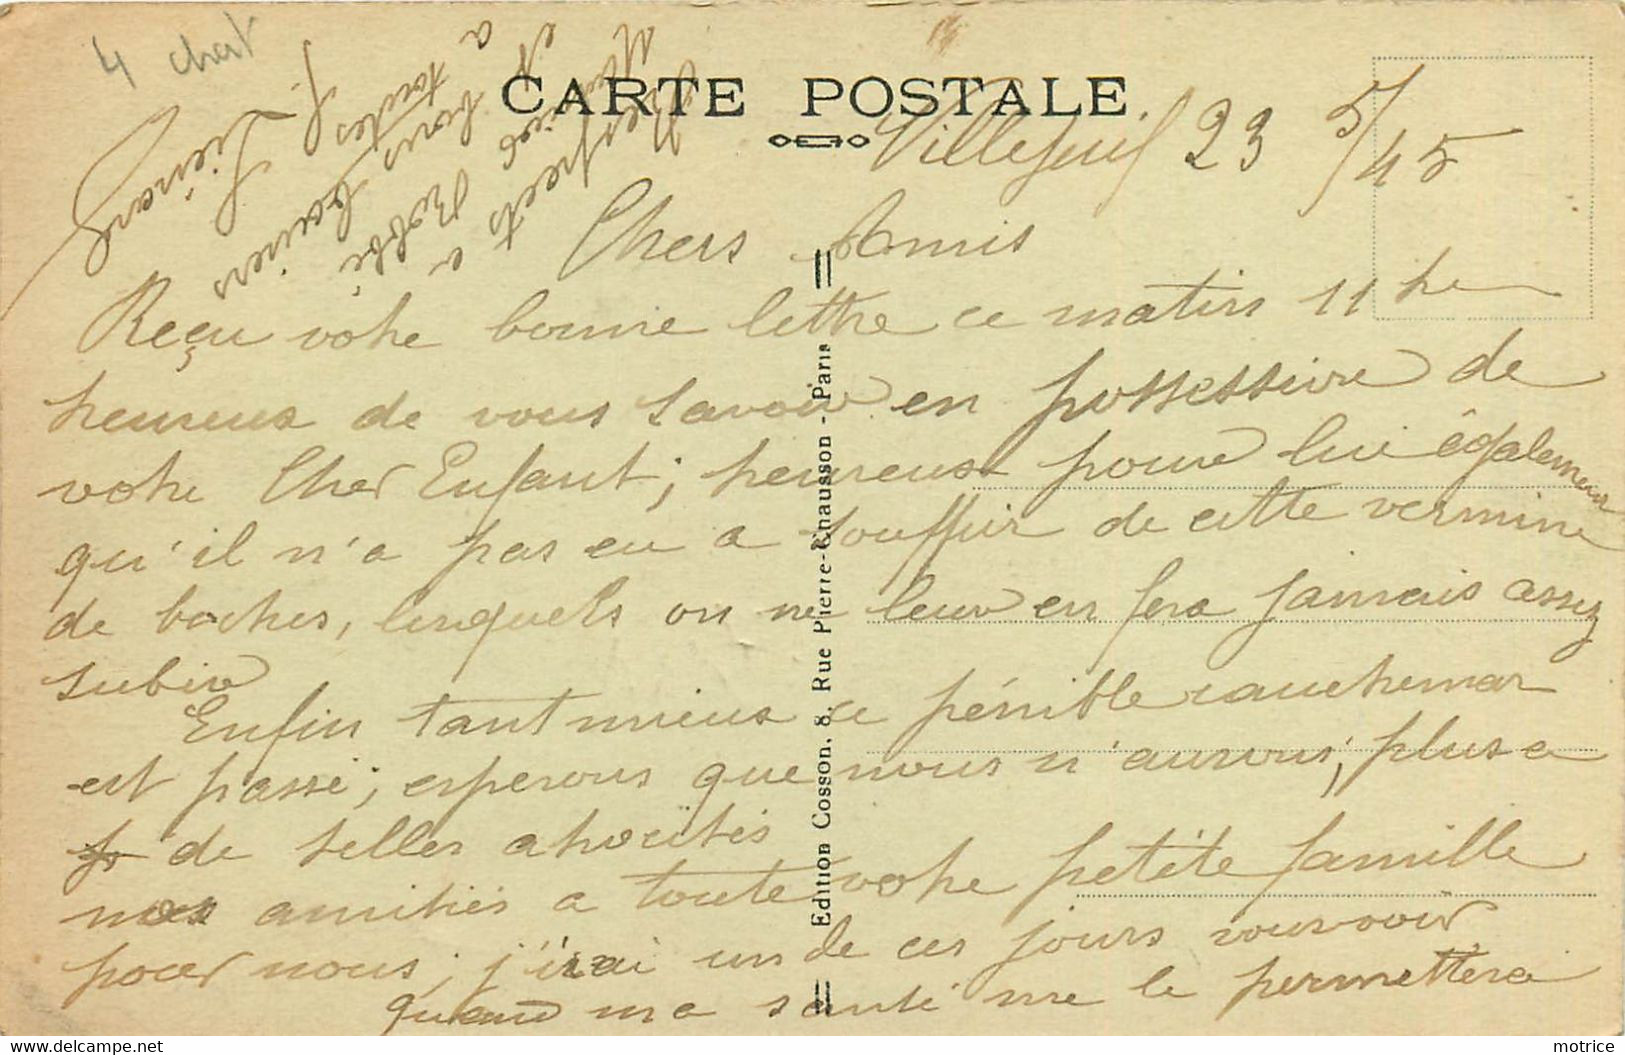 4 chert
CARTE POSTALE
Villejuif 23 5/45
Chers Amis
Reçu votre bonne lettre ce matin 11 he
heureux de vous savoir en possessive de
votre Cher Enfant; heureux pour lui également
qu'il n'a pas eu a souffrir de cette vermine
de boches, lesquels on ne leur en fera jamais assez
subir
Enfin tant mieux ce pénible cauchemar
est passé; esperons que nous n'aurons, plus a
de telles atrocités
nos amitiés a toute votre petite famille
pour nous; j'irai un de ces jours vous voir
quand ma santé me le permettera
et Bons
a tous
toutes
baisers
J. Liénard
Edition Cosson, 8, Rue Pierre-Chausson - Paris
motrice
www.delcampe.net